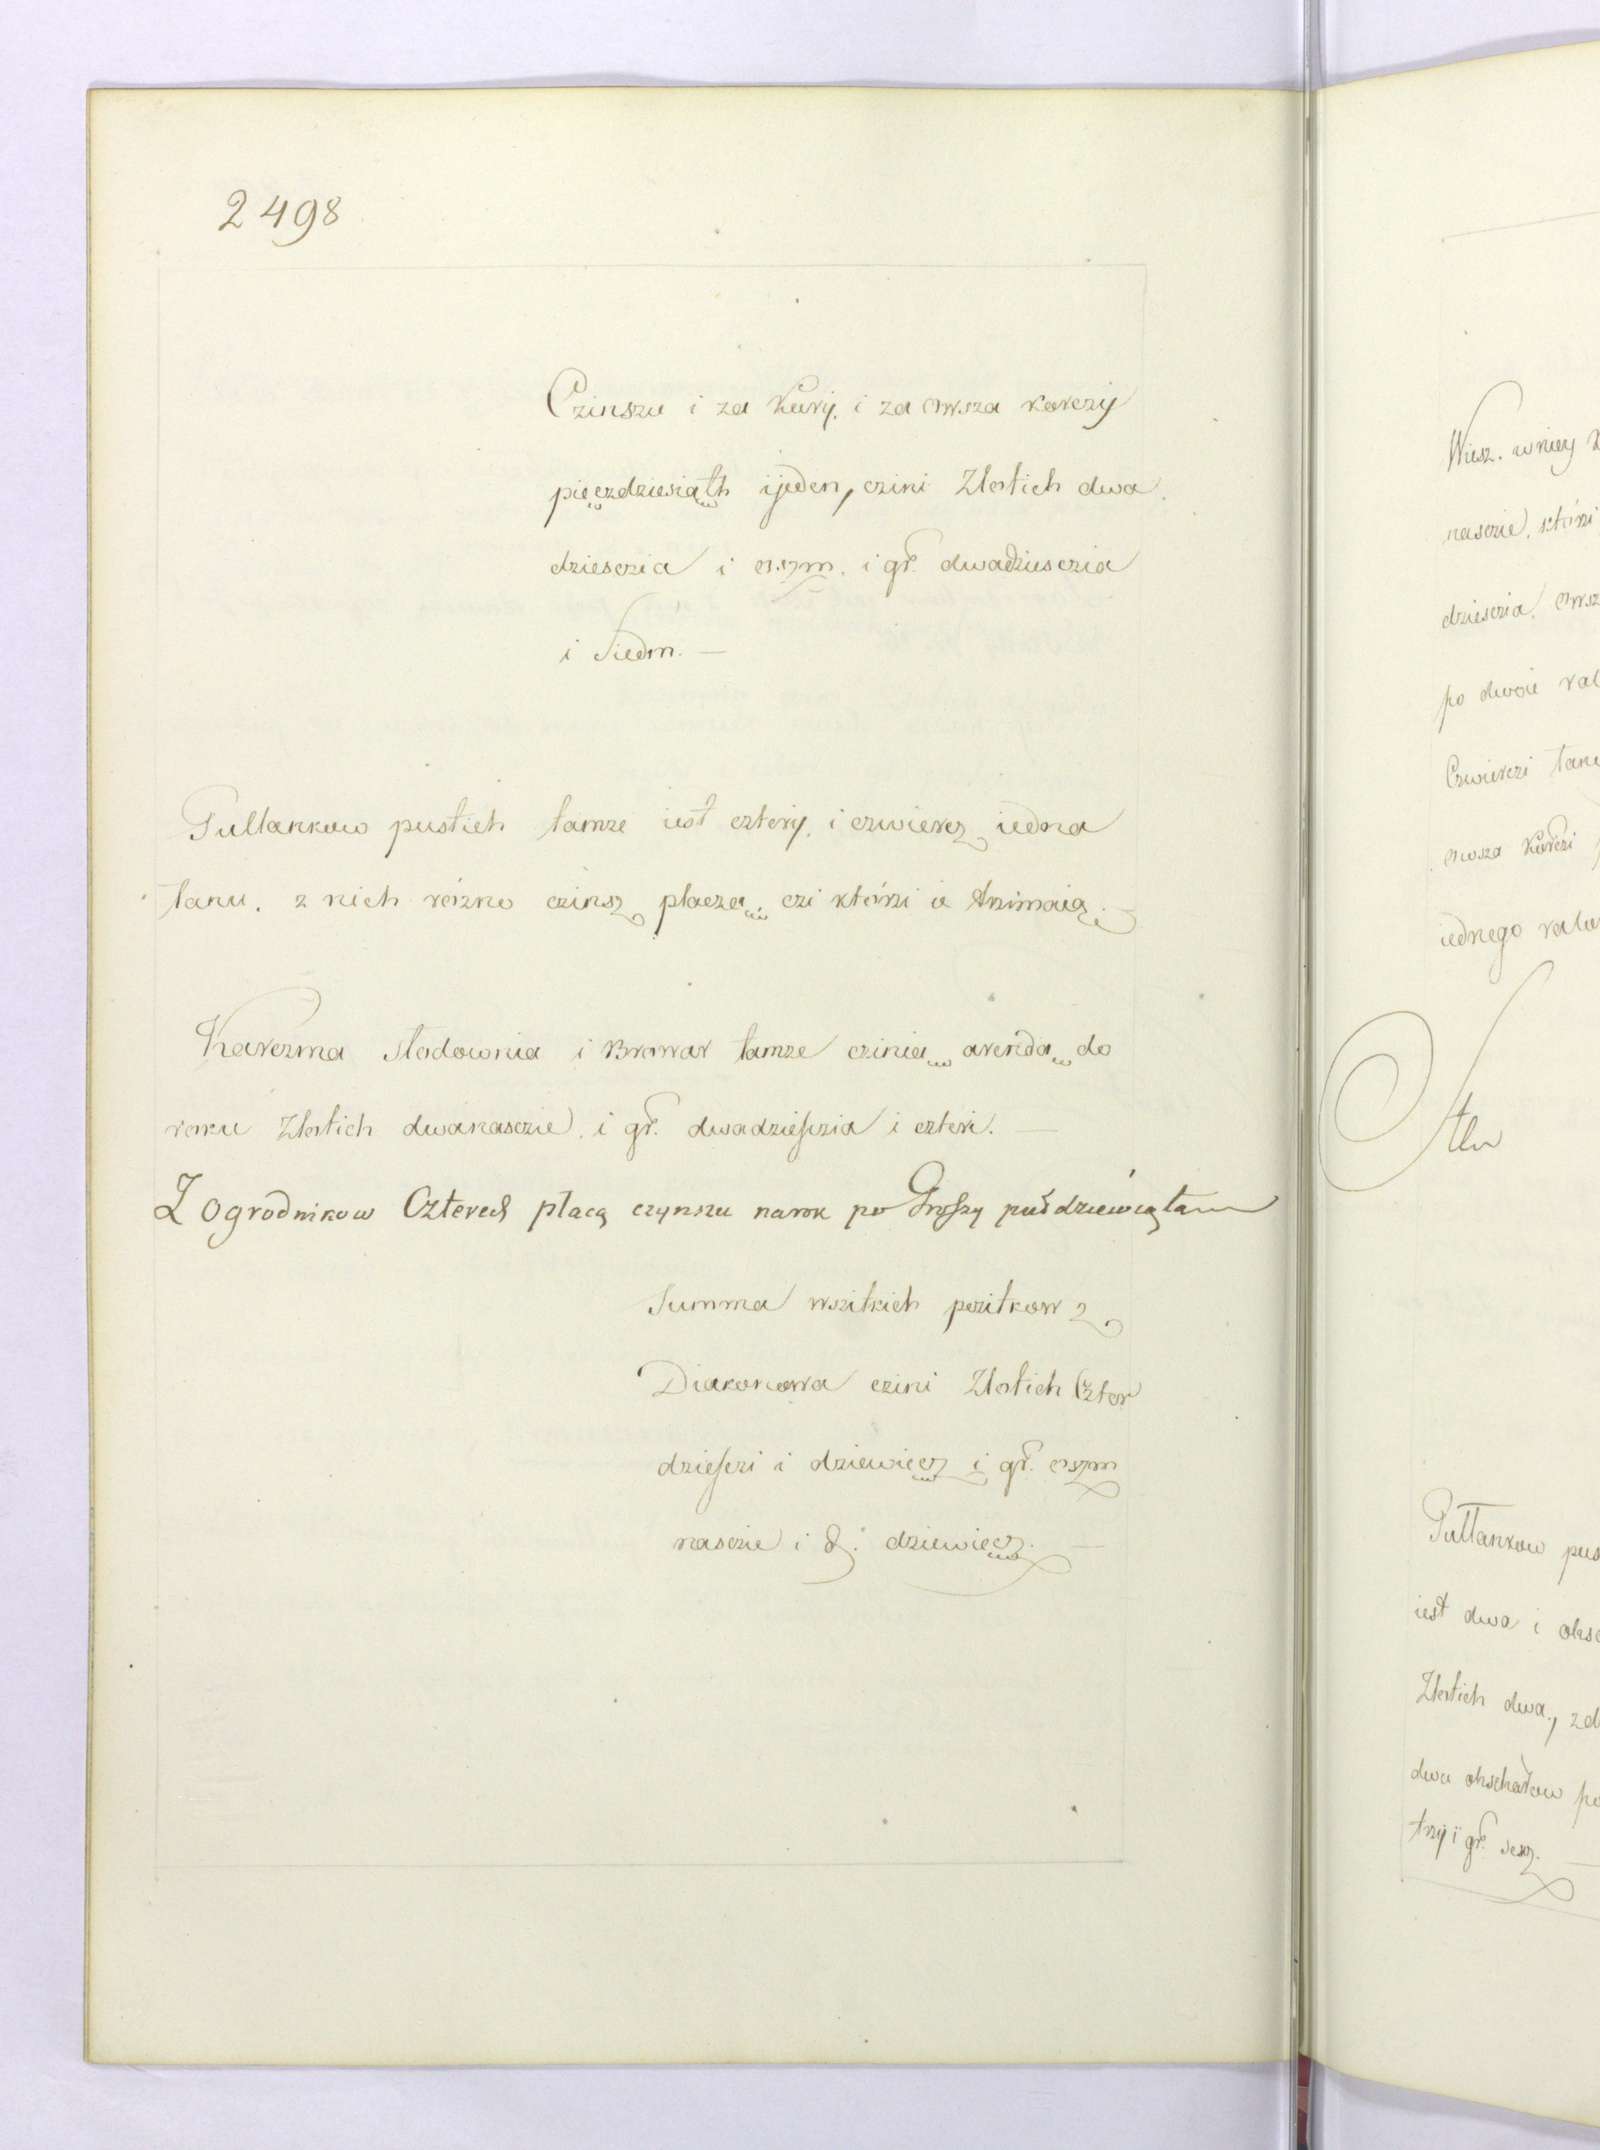 2498
Czinszu i za Kurÿ. i za owsza korczÿ
pięczdziesiąth ÿeden, czini Złotich dwa
dziesczia i oszm. i gr. dwadziesczia
i Siedm. —
Pulłankow pustich tamze iest czterÿ. i czwiercz iedna
łanu. z nich rózno czinsz płaczą. czi którzi ie trzimaią. —
Karczma Słodownia i Browar tamze czinią arendą do
roku Złotich dwanasczie. i gr. dwadziesczia i czteri. —
Z Ogrodnikow Czterech płacą czynszu narok po Groszy pułdziewięta
Summa wszitkich pozitkow z
Diakonowa czini Złotich Czter
dziesczi i dziewięcz i gr. oszm
nasczie i d. dziewięcz. —
Wiesz. w niey
nasczie. którzi
dziesczia. Owsz
po dwoie kal
Czwierczi łanu
owsza Korczi
iednego
Pułłankow pus
iest dwa i
Złotich dwa., zd
dwa
trzÿ i gr. sesz. —